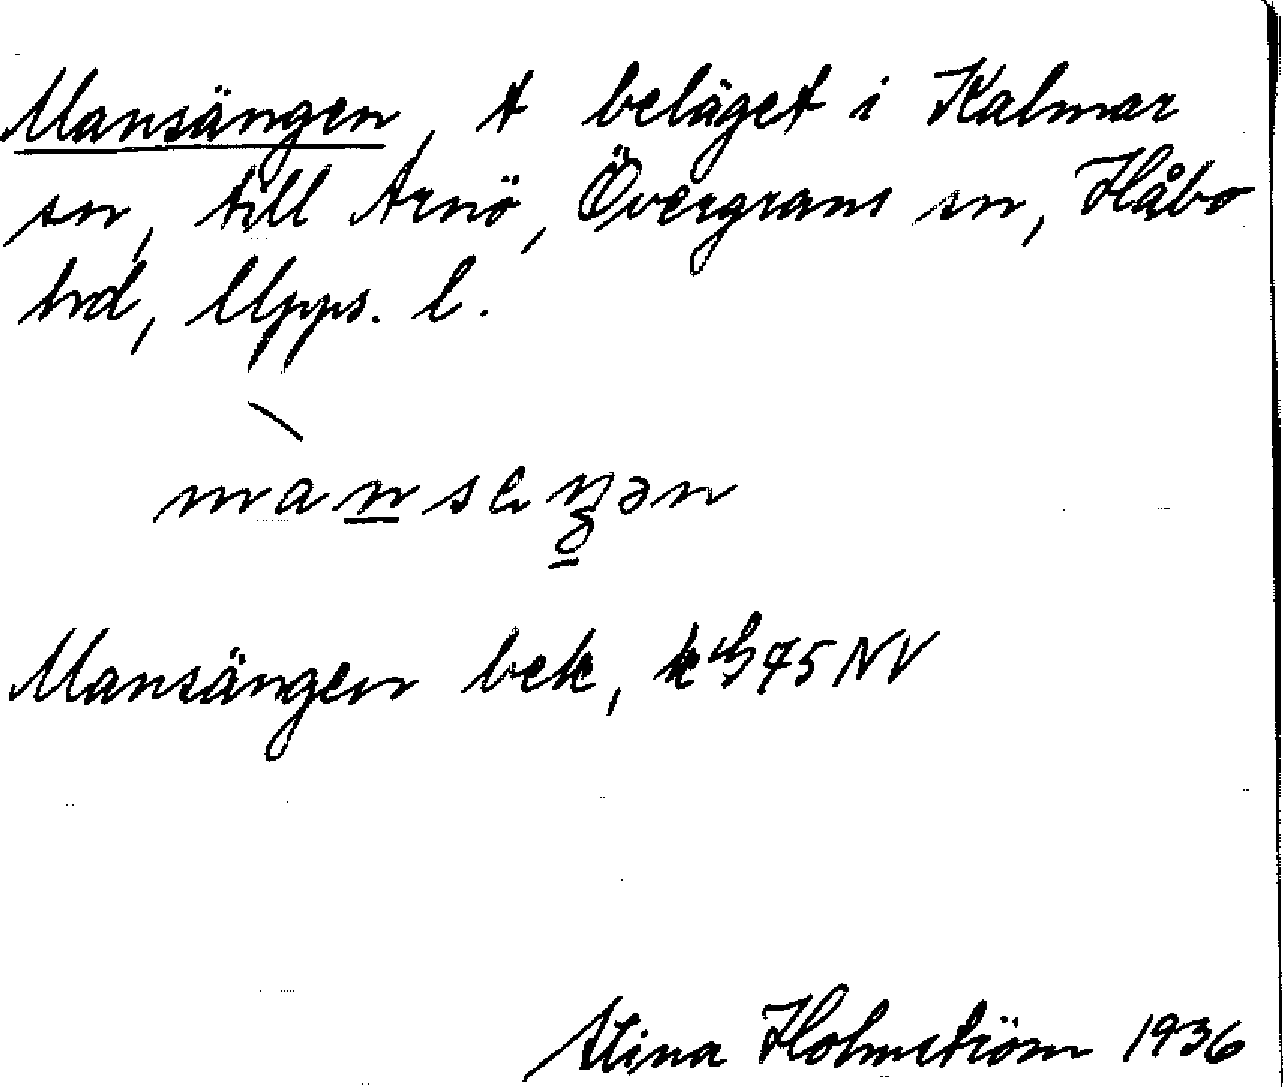 Mansängen, t beläget i Kalmar
sn, till Arnö, Övergrans sn, Håbo
hrd, Upps. l.
Mansängen bek, 75 NV
Stina Holmström 1936